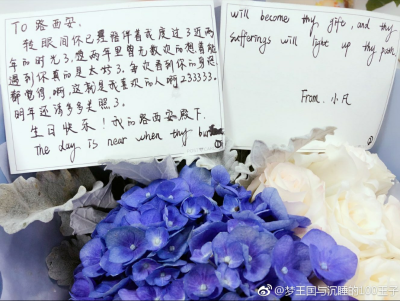 TO 路西安.
转眼间你已是陪伴着我度过了近两
年的时光了,这两年里曾无数次的想着能
遇到你真的是太好了.每次看到你的身影
都觉得,啊,这就是我喜欢的人啊23333.
明年还请多多关照了.
生日快乐!我的路西安殿下.
The day is near when thy
①
will become thy gift, and thy
sufferings will light up thy path.
From. 小凡
②
@梦王国与沉睡的100王子